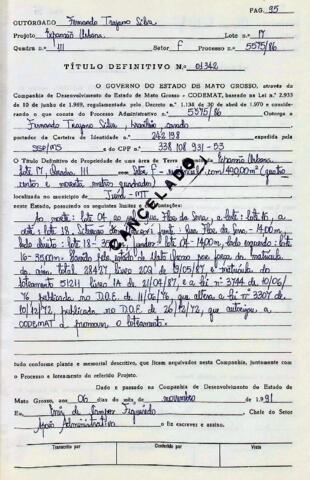 PAG. 95
OUTORGADO Fernando Trajano Silva
Projeto Expansão Urbana Lote n.º 17
Quadra n.º III Setor F Processo n.º 5575/86
TÍTULO DEFINITIVO N.º 01342
O GOVERNO DO ESTADO DE MATO GROSSO, através da
Companhia de Desenvolvimento do Estado de Mato Grosso - CODEMAT, baseado na Lei n.º 2.933
de 10 de junho de 1969, regulamentada pelo Decreto n.º 1.138 de 30 de abril de 1970 e considerando
o que consta do Processo Administrativo n.º 5375/86 Outorga a
Fernando Trajano Silva, brasileiro, casado
portador da Carteira de Identidade n.º 242 198 expedida pela
SSP/MS e do CPF n.º 338 108 931-53
O Título Definitivo de Propriedade de uma área de Terra Expansão Urbana
Lote 17, Quadra III Setor F 490,00m² (quatro
centos e noventa metros quadrados)
localizada no município de MT
neste Estado, possuindo os seguintes limites e
CANCELADO
Ao norte: lote 04 ao sul: Rua Flor da Serra, a leste: lote 16, a
oeste: lote 18, frente: Rua Flor da Serra - 14,00m,
lado direito: lote 18 - 35,00m, fundos: lote 04 - 14,00m, lado esquerdo: lote
16 - 35,00m. Estado de Mato Grosso por força da matrícula
da área total 28477, livro 2DQ de 19/05/87 e matrícula do
loteamento 51211 livro 1A de 21/04/87, e a lei nº 3744 de 10/06/
76 publicada no D.O.E. de 11/06/76 que altera a lei nº 3307 de
10/12/72 publicada no D.O.E de 26/12/72, que autoriza a
CODEMAT a promover o loteamento.
tudo conforme planta e memorial descritivo, que ficam arquivados nesta Companhia, juntamente com
o Processo e loteamento do referido Projeto.
Dado e passado na Companhia de Desenvolvimento do Estado de
Mato Grosso, aos 06 dias do mês de novembro de 1991
Eu, de Campos Figueiredo Chefe do Setor
Apoio Administrativo o fiz escrever e assino.
Transcrito por Conferido por Visto